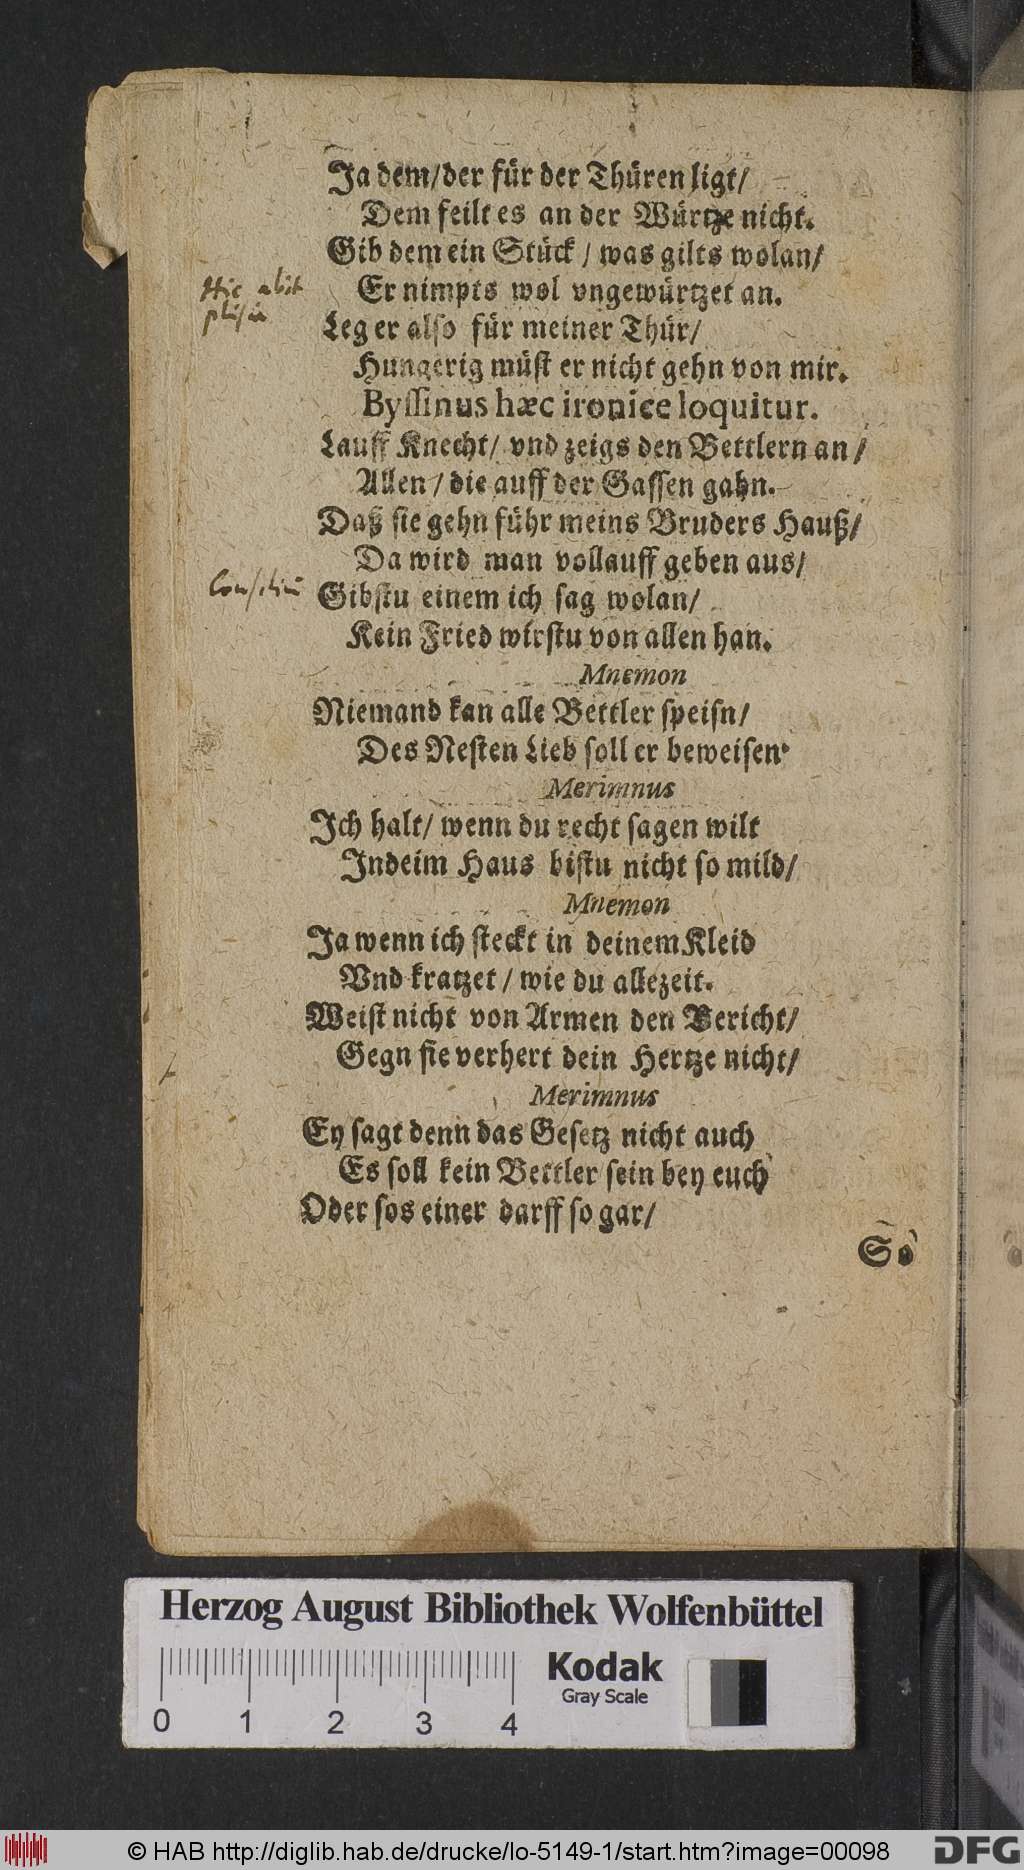 Ja dem/der für der Thüren ligt/
Dem feilt es an der Würtze nicht.
Gib dem ein Stück / was gilts wolan/
Er nimpts wol vngewürtzet an.
Hic abit
Leg er also für meiner Thür/
Hungerig müst er nicht gehn von mir.
Byssinus hæc ironice loquitur.
Lauff Knecht/ vnd zeigs den Bettlern an /
Allen / die auff der Gassen gahn.
Daß sie gehn führ meins Bruders Hauß/
Da wird man vollauff geben aus/
Gibstu einem ich sag wolan/
Kein Fried wirstu von allen han.
Mnemon
Niemand kan alle Bettler speisn/
Des Nesten Lieb soll er beweisen.
Merimnus
Ich halt/ wenn du recht sagen wilt
Indeim Haus bistu nicht so mild/
Mnemon
Ja wenn ich steckt in deinem Kleid
Vnd kratzet / wie du allezeit.
Weist nicht von Armen den Bericht/
Gegn sie verhert dein Hertze nicht/
Merimnus
Ey sagt denn das Gesetz nicht auch
Es soll kein Bettler sein bey euch
Oder sos einer darff so gar/
So
Herzog August Bibliothek Wolfenbüttel
Kodak
Gray Scale
0 1 2 3 4
© HAB http://diglib.hab.de/drucke/lo-5149-1/start.htm?image=00098
DFG